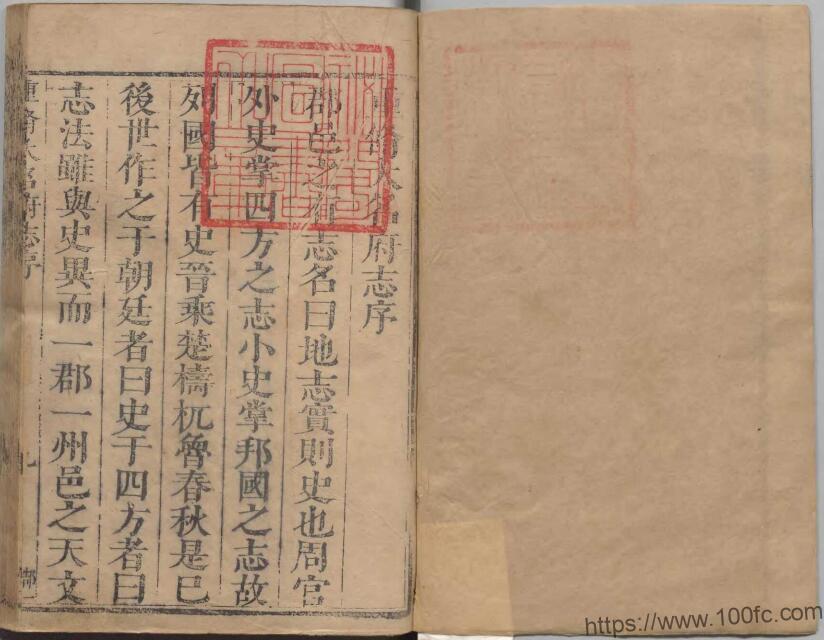 重脩大名府志序
郡邑之有志名曰地志實則史也周官
外史掌四方之志小史掌邦國之志故
列國皆有史晉乘楚檮杌魯春秋是已
後世作之于朝廷者曰史于四方者曰
志法雖與史異而一郡一州邑之天文
重脩大名府志序
https://www.100fc.com